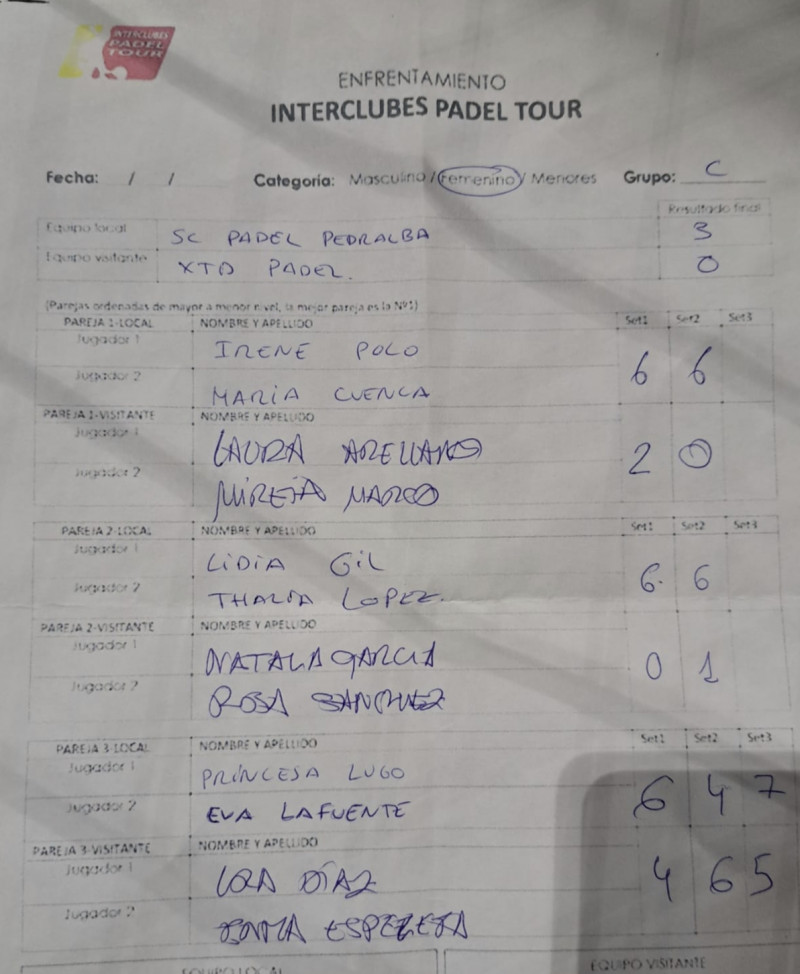 INTERCLUBES
PADEL
TOUR
ENFRENTAMIENTO
INTERCLUBES PADEL TOUR
Fecha: / / Categoría: Masculino / Femenino / Menores Grupo: C
Resultado final
Equipo local SC PADEL PEDRALBA 3
Equipo visitante XTD PADEL. 0
(Parejas ordenadas de mayor a menor nivel, la mejor pareja es la Nº1)
PAREJA 1-LOCAL NOMBRE Y APELLIDO Set1 Set2 Set3
Jugador 1 IRENE POLO
6 6
Jugador 2 MARIA CUENCA
PAREJA 1-VISITANTE NOMBRE Y APELLIDO
Jugador 1 LAURA ARELLANO
2 0
Jugador 2 MIREIA MARCO
PAREJA 2-LOCAL NOMBRE Y APELLIDO Set1 Set2 Set3
Jugador 1 LIDIA GIL
6. 6
Jugador 2 THALIA LOPEZ.
PAREJA 2-VISITANTE NOMBRE Y APELLIDO
Jugador 1 NATALIA GARCIA
0 1
Jugador 2 ROSA SANCHEZ
PAREJA 3-LOCAL NOMBRE Y APELLIDO Set1 Set2 Set3
Jugador 1 PRINCESA LUGO
6 4 7
Jugador 2 EVA LAFUENTE
PAREJA 3-VISITANTE NOMBRE Y APELLIDO
Jugador 1 DÍAZ
4 6 5
Jugador 2
EQUIPO LOCAL EQUIPO VISITANTE